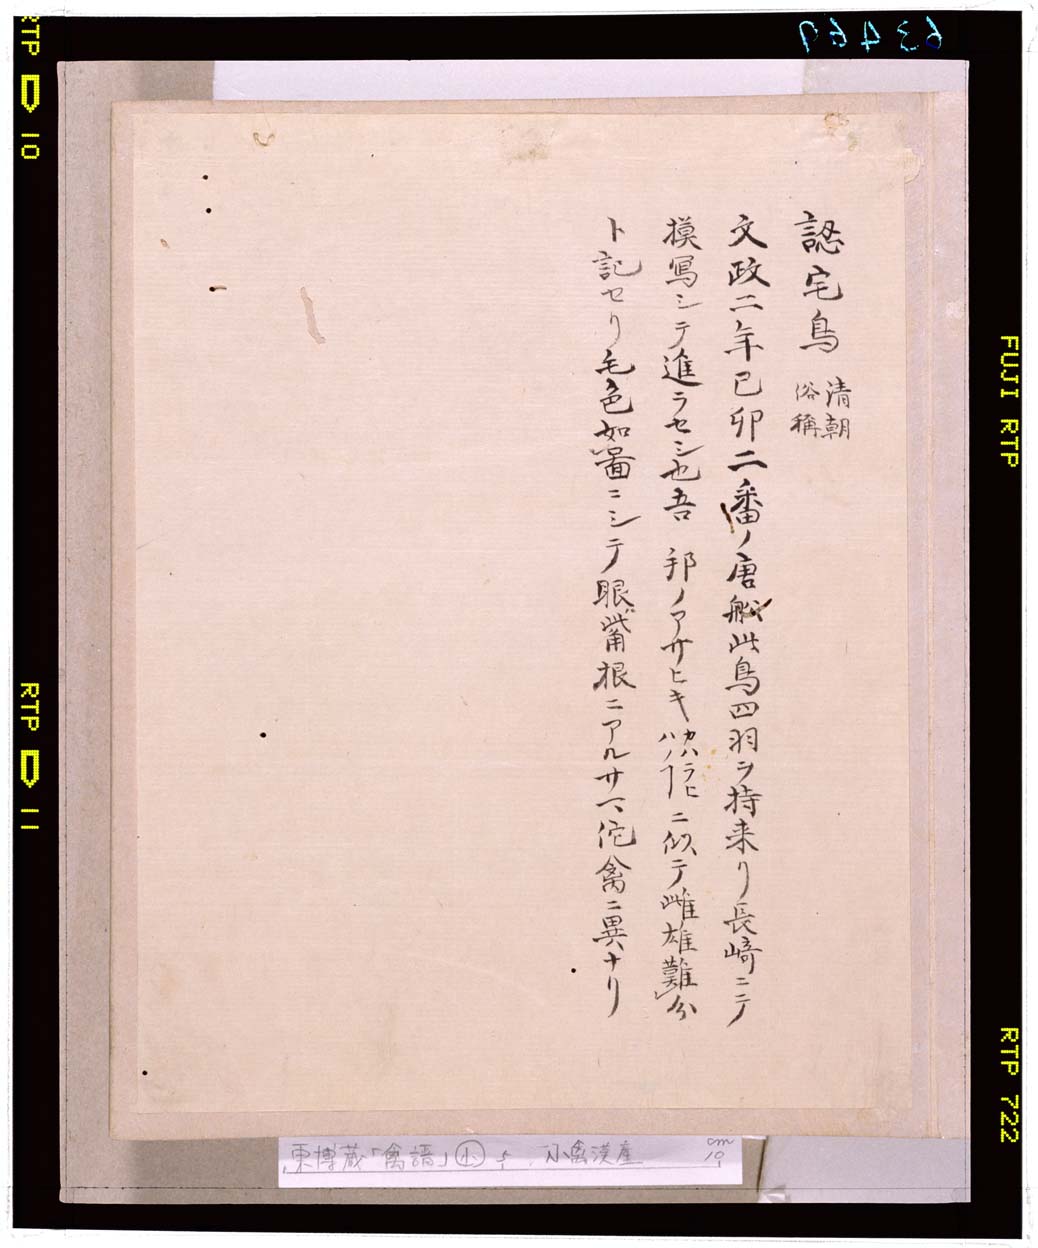 63469
RTP 10
RTP 11
FUJI RTP
RTP 722
認宅鳥 清朝俗稱
文政二年己卯二番ノ唐舩此鳥四羽ヲ持来リ長崎ニテ
摸寫シテ進ラセシ也吾邦ノアサヒキカハラヒハノ ニ似テ雌雄難分
ト記セリ毛色如圖ニシテ眼觜根ニアルサマ佗禽ニ異ナリ
東博蔵「禽譜」小 5 小禽漢産 cm 10